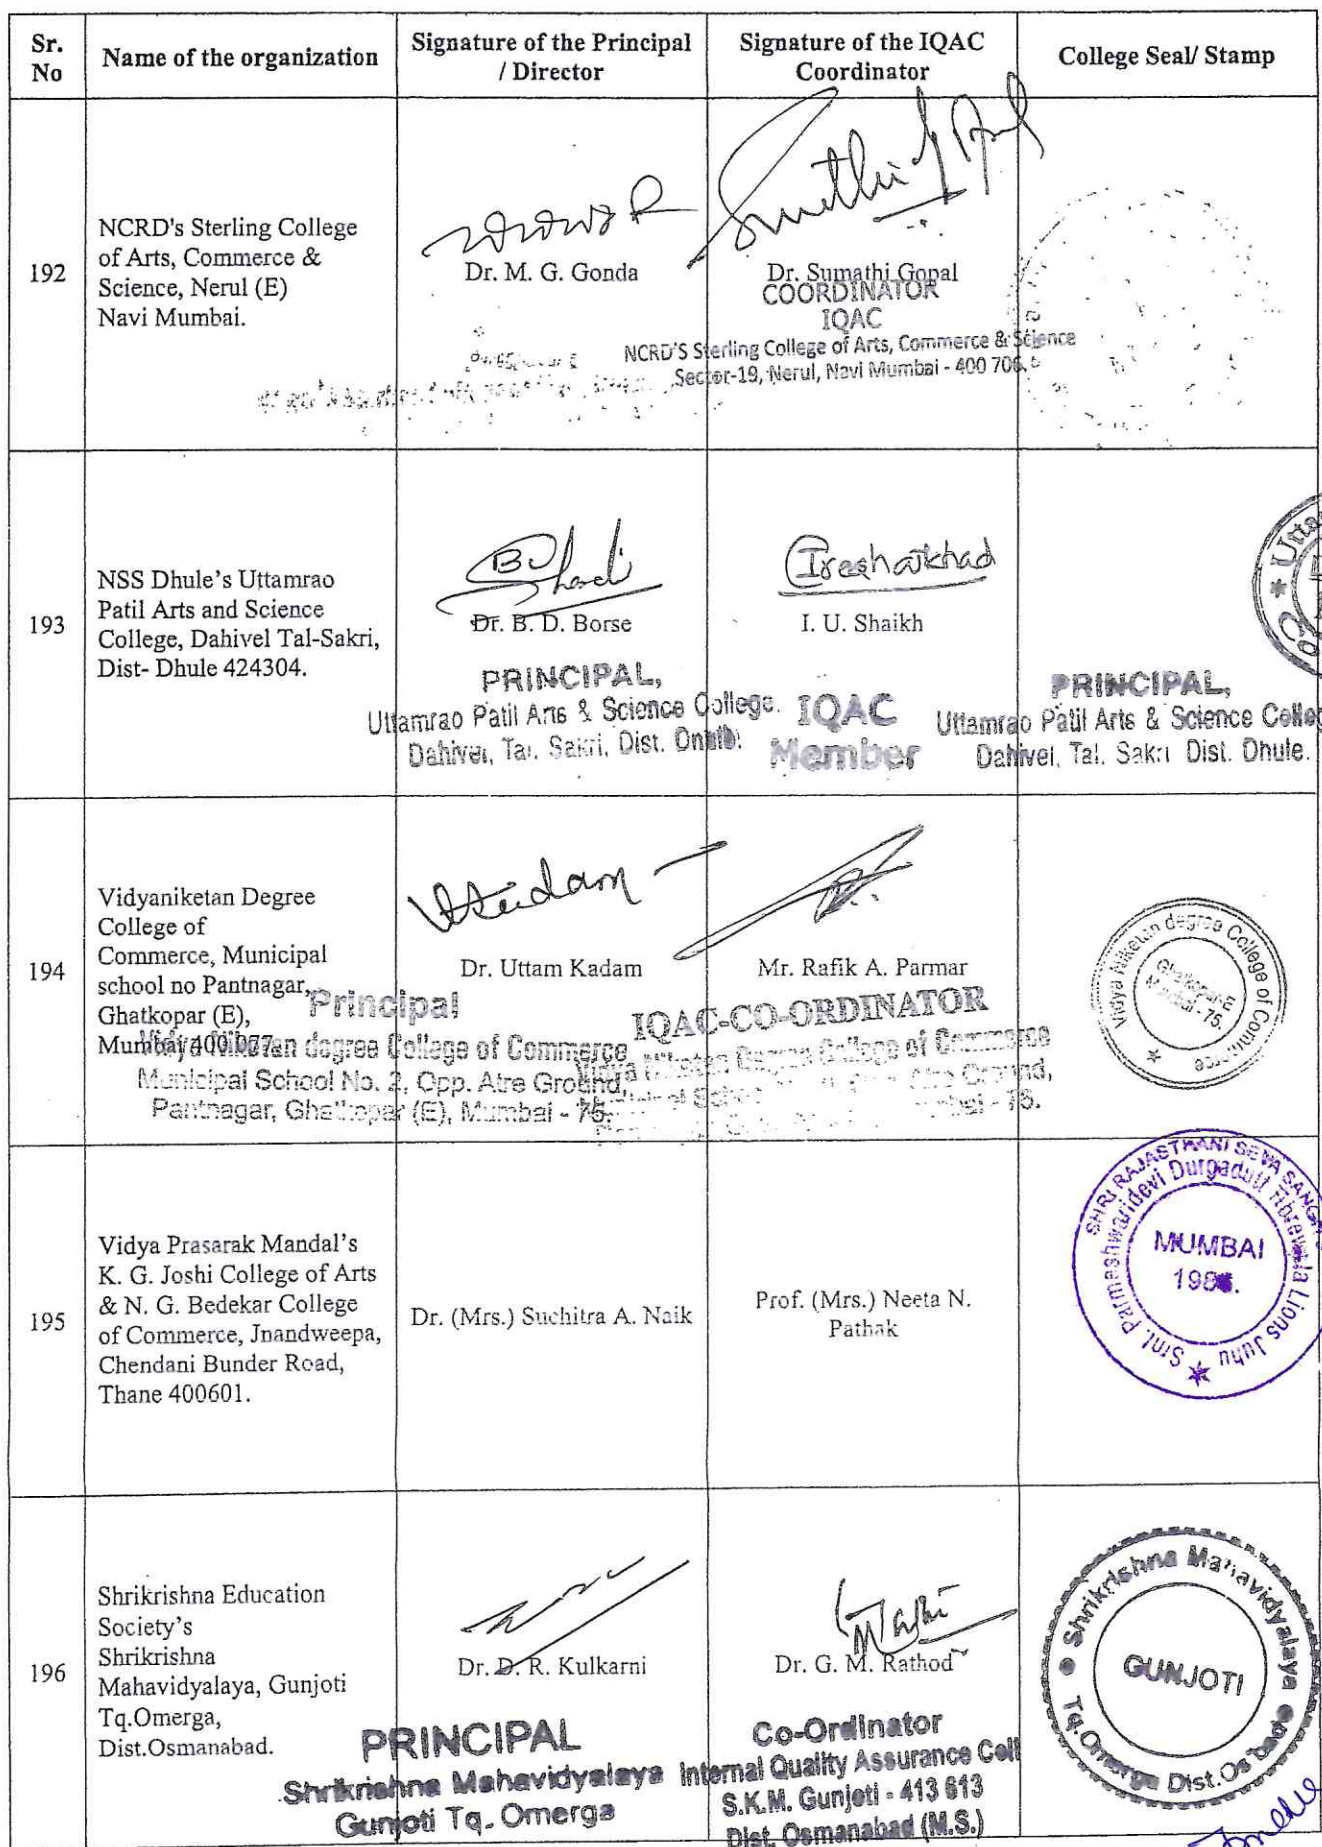 Sr. No
Name of the organization
Signature of the Principal / Director
Signature of the IQAC Coordinator
College Seal/ Stamp
192
NCRD's Sterling College
of Arts, Commerce &
Science, Nerul (E)
Navi Mumbai.
Dr. M. G. Gonda
Dr. Sumathi Gopal
COORDINATOR
IQAC
NCRD'S Sterling College of Arts, Commerce & Science
Sector-19, Nerul, Navi Mumbai - 400 706.
193
NSS Dhule's Uttamrao
Patil Arts and Science
College, Dahivel Tal-Sakri,
Dist- Dhule 424304.
Dr. B. D. Borse
PRINCIPAL,
Uttamrao Patil Arts & Science College.
Dahivel, Tal. Sakri, Dist.
I. U. Shaikh
IQAC
Member
PRINCIPAL,
Uttamrao Patil Arts & Science
Dahivel, Tal. Sakri Dist. Dhule.
194
Vidyaniketan Degree
College of
Commerce, Municipal
school no Pantnagar,
Ghatkopar (E),
Mumbai 400 077.
Dr. Uttam Kadam
Principal
Vidya Niketan degree College of Commerce
Municipal School No. 2, Opp. Atre Ground,
Pantnagar, Ghatkopar (E), Mumbai - 75.
Mr. Rafik A. Parmar
IQAC-CO-ORDINATOR
Vidya Niketan Degree College of Commerce
Atre Ground,
- 75.
Vidya Niketan degree College of Commerce
Ghatkopar-E
Mumbai - 75.
195
Vidya Prasarak Mandal's
K. G. Joshi College of Arts
& N. G. Bedekar College
of Commerce, Jnandweepa,
Chendani Bunder Road,
Thane 400601.
Dr. (Mrs.) Suchitra A. Naik
Prof. (Mrs.) Neeta N.
Pathak
SHRI RAJASTHANI SEVA
Smt. Parmeshwaridevi Durgadutt Tibrewala Lions Juhu
MUMBAI
196
Shrikrishna Education
Society's
Shrikrishna
Mahavidyalaya, Gunjoti
Tq.Omerga,
Dist.Osmanabad.
Dr. D. R. Kulkarni
PRINCIPAL
Shrikrishna Mahavidyalaya
Gunjoti Tq. Omerga
Dr. G. M. Rathod
Co-Ordinator
Internal Quality Assurance Cell
S.K.M. Gunjoti - 413 613
Dist. Osmanabad (M.S.)
Shrikrishna Mahavidyalaya
Tq. Omerga Dist.
GUNJOTI